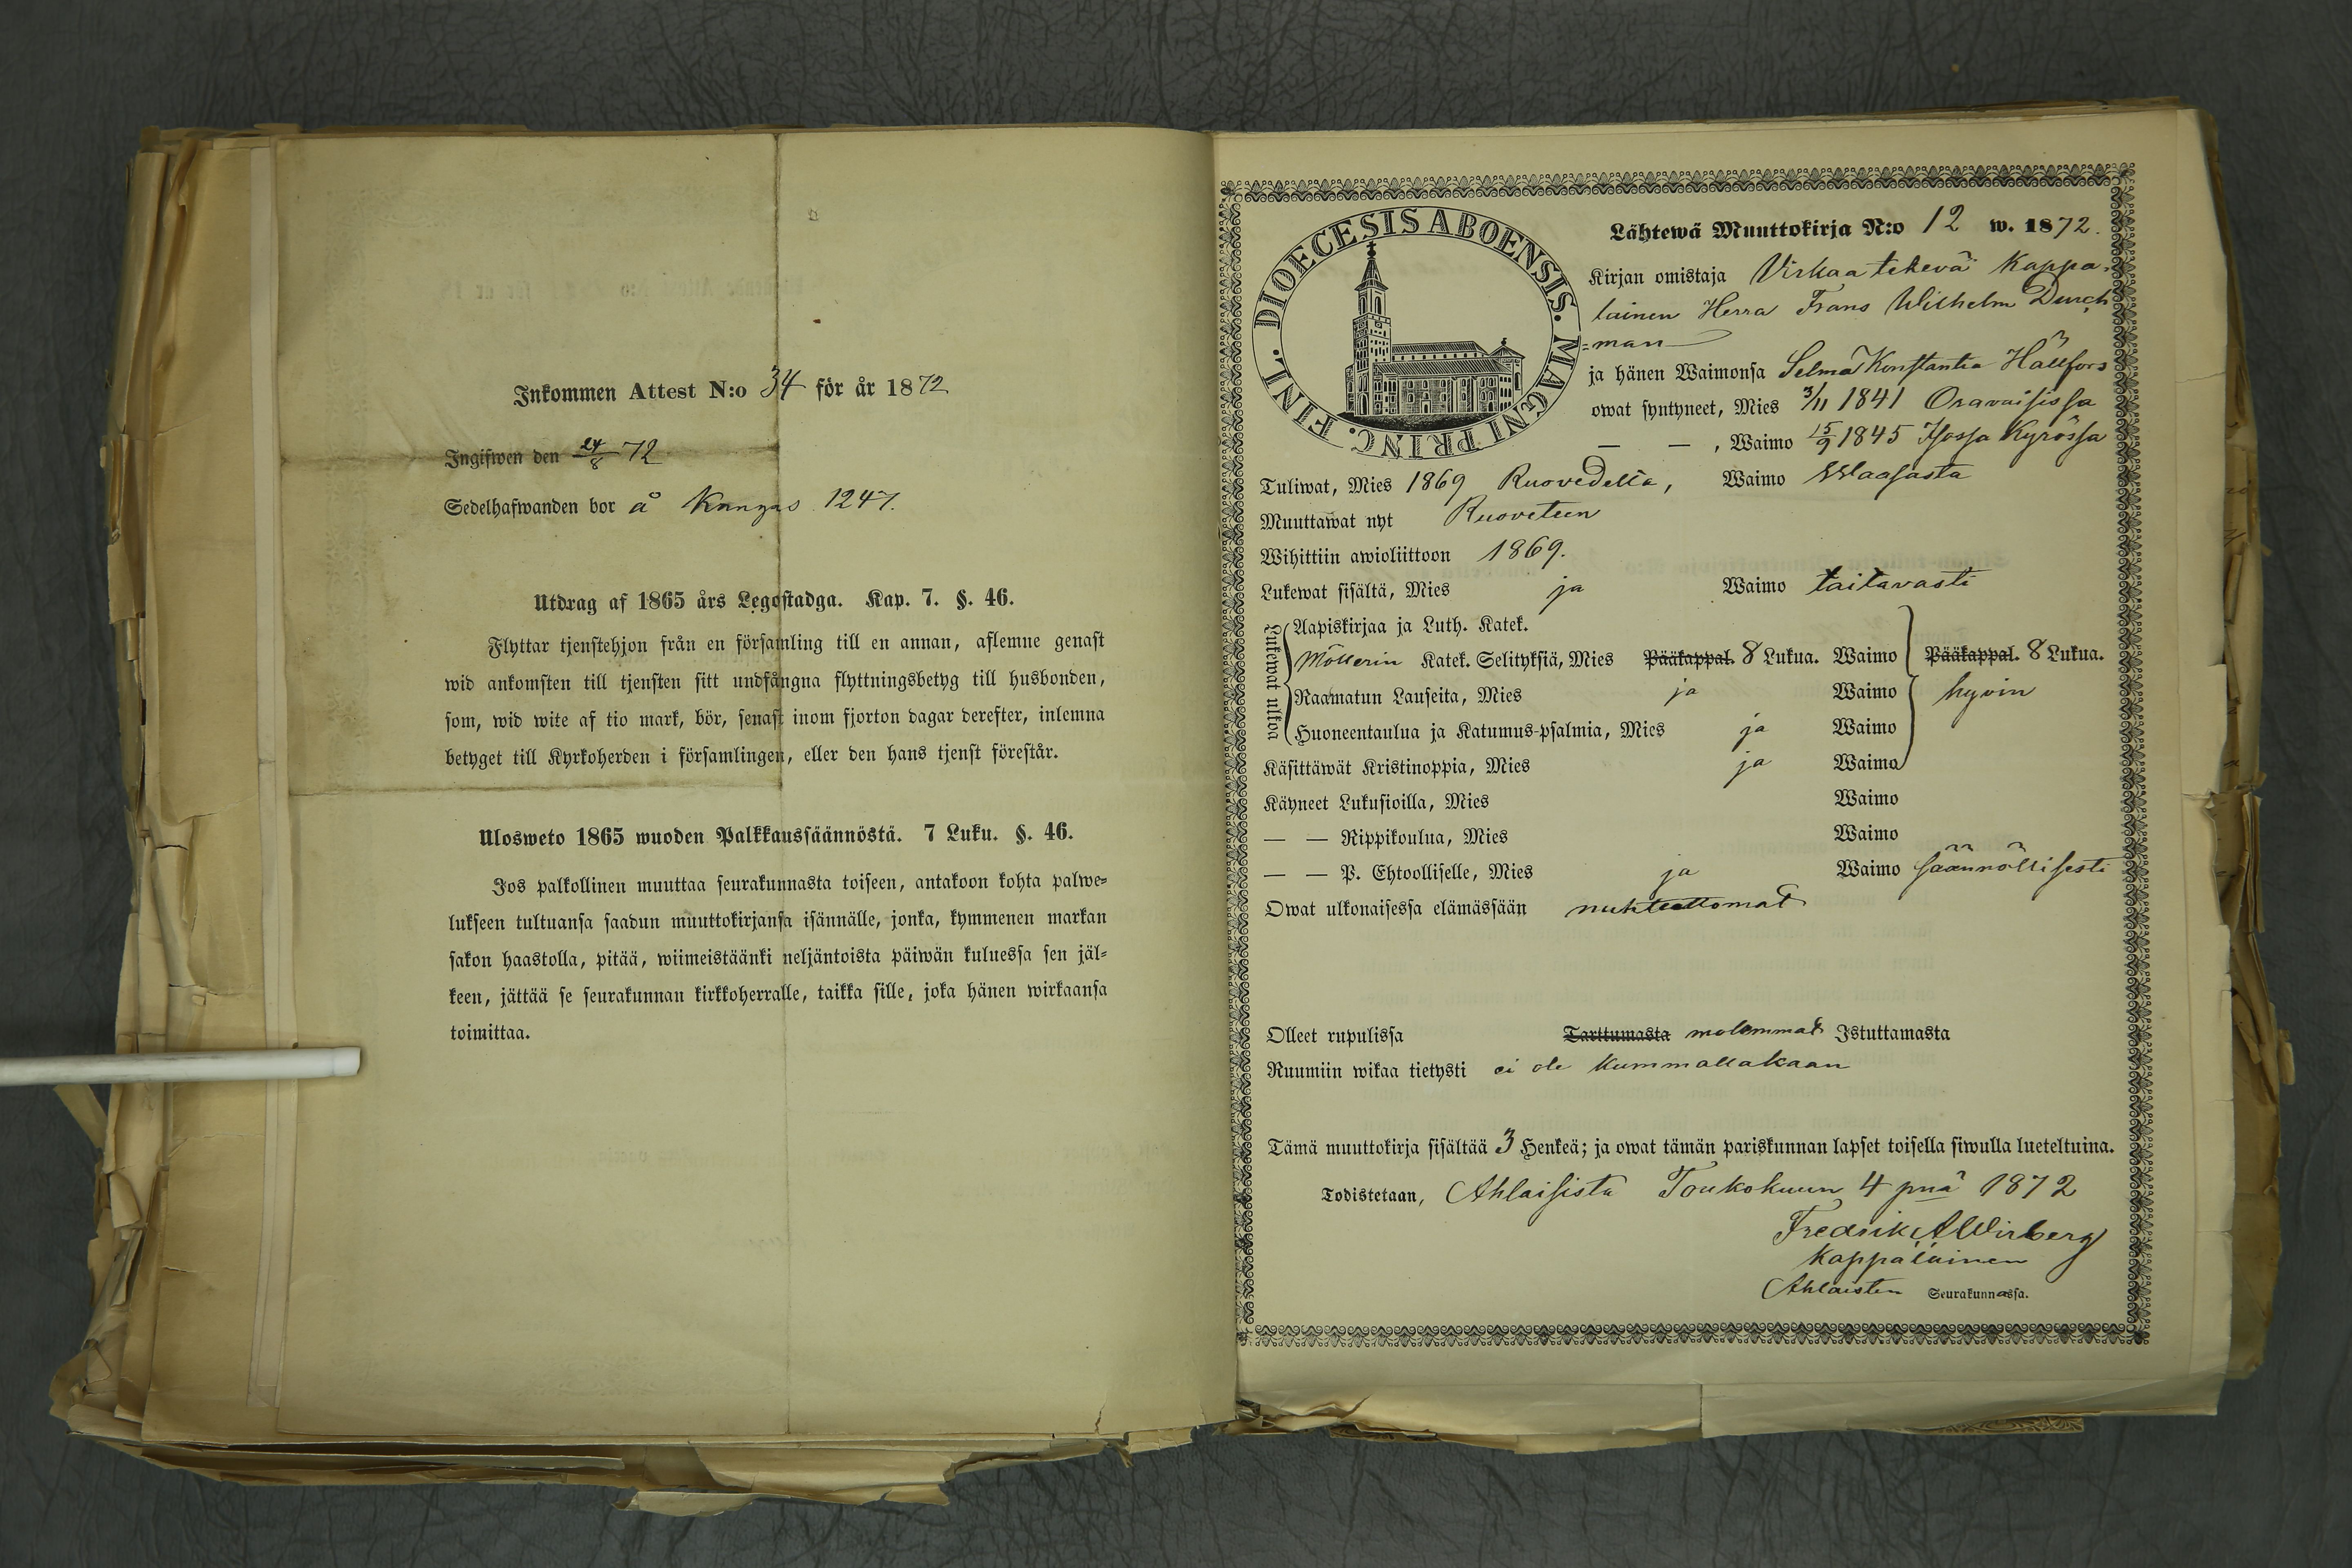 Inkommen Attest N:o 34 för år 1872
Ingifwen den 24/8 72
Sedelhafwanden bor å Kangas 1247.
Utdrag af 1865 års Legostadga. Kap. 7. §. 46.
Flyttar tjenstehjon från en församling till en annan, aflemne genast
wid ankomsten till tjensten sitt undfångna flyttningsbetyg till husbonden,
som, wid wite af tio mark, bör, senast inom fjorton dagar derefter, inlemna
betyget till Kyrkoherden i församlingen, eller den hans tjenst förestår.
Ulosweto 1865 wuoden Palkkaussäännöstä. 7 Luku. §. 46.
Jos palkollinen muuttaa seurakunnasta toiseen, antakoon kohta palwe-
lukseen tultuansa saadun muuttokirjansa isännälle, jonka, kymmenen markan
sakon haastolla, pitää, wiimeistäänki neljäntoista päiwän kuluessa sen jäl-
keen, jättää se seurakunnan kirkkoherralle, taikka sille, joka hänen wirkaansa
toimittaa.
DIOECESIS ABOENSIS. MAGNI PRINC. FINL.
Lähtewä Muuttokirja N:o 12 w. 1872.
Kirjan omistaja Virkaa tekevä Kappa-
lainen Herra Frans Wilhelm Durch
=man
ja hänen Waimonsa Selma Konstantia Hällfors
owat syntyneet, Mies 3/11 1841 Oravaisissa
— — , Waimo 15/9 1845 Isossa Kyrössä
Tuliwat, Mies 1869 Ruovedeltä, Waimo Waasasta
Muuttawat nyt Ruoveteen
Wihittiin awioliittoon 1869.
Lukewat sisältä, Mies ja Waimo taitavasti
Lukewat ulkoa
Aapiskirjaa ja Luth. Katek.
Möllerin Katek. Selityksiä, Mies Pääkappal. 8 Lukua. Waimo Pääkappal. 8 Lukua.
Raamatun Lauseita, Mies ja Waimo hyvin
Huoneentaulua ja Katumus-psalmia, Mies ja Waimo
Käsittäwät Kristinoppia, Mies ja Waimo
Käyneet Lukusioilla, Mies Waimo
— — Rippikoulua, Mies Waimo
— — P. Ehtoolliselle, Mies ja Waimo säännöllisesti
Owat ulkonaisessa elämässään nuhteettomat
Olleet rupulissa Tarttumasta molemmat Istuttamasta
Ruumiin wikaa tietysti ei ole kummallakaan
Tämä muuttokirja sisältää 3 Henkeä; ja owat tämän pariskunnan lapset toisella siwulla lueteltuina.
Todistetaan, Ahlaisista Toukokuun 4 pnä 1872
Fredrik A Wirberg
Kappalainen
Ahlaisten Seurakunnassa.